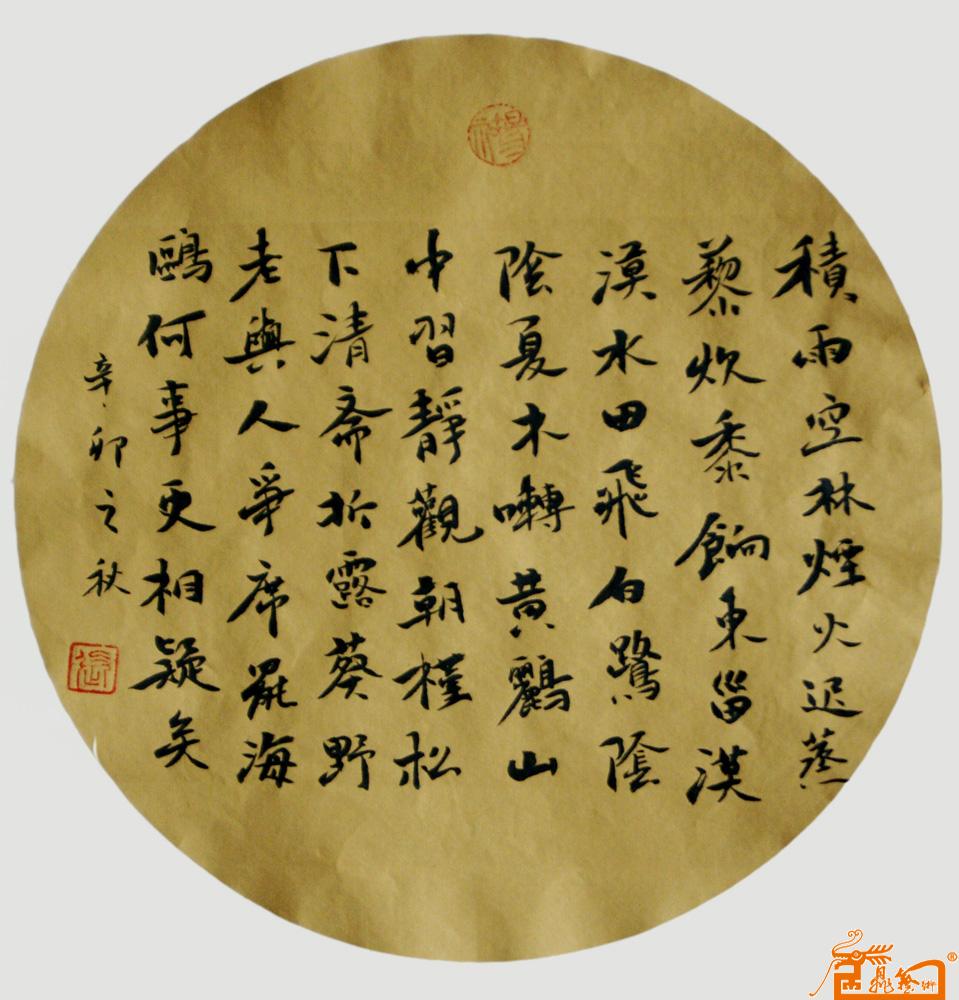 積雨空林煙火迟蒸
藜炊黍餉東甾漠
漠水田飛白鷺陰
陰夏木囀黄鸝山
中習靜觀朝槿松
下清斋折露葵野
老與人爭席罷海
鷗何事更相疑矣
辛卯之秋